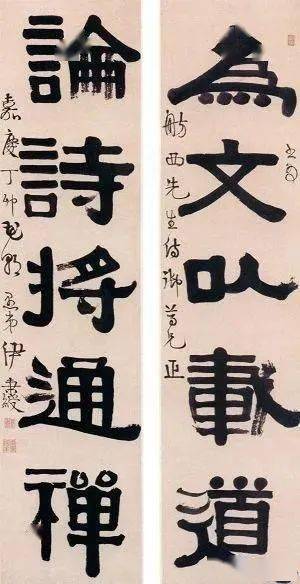 為文以載道
舫西先生侍御尊兄正
論詩將通禪
嘉慶丁卯花朝 愚弟伊秉綬